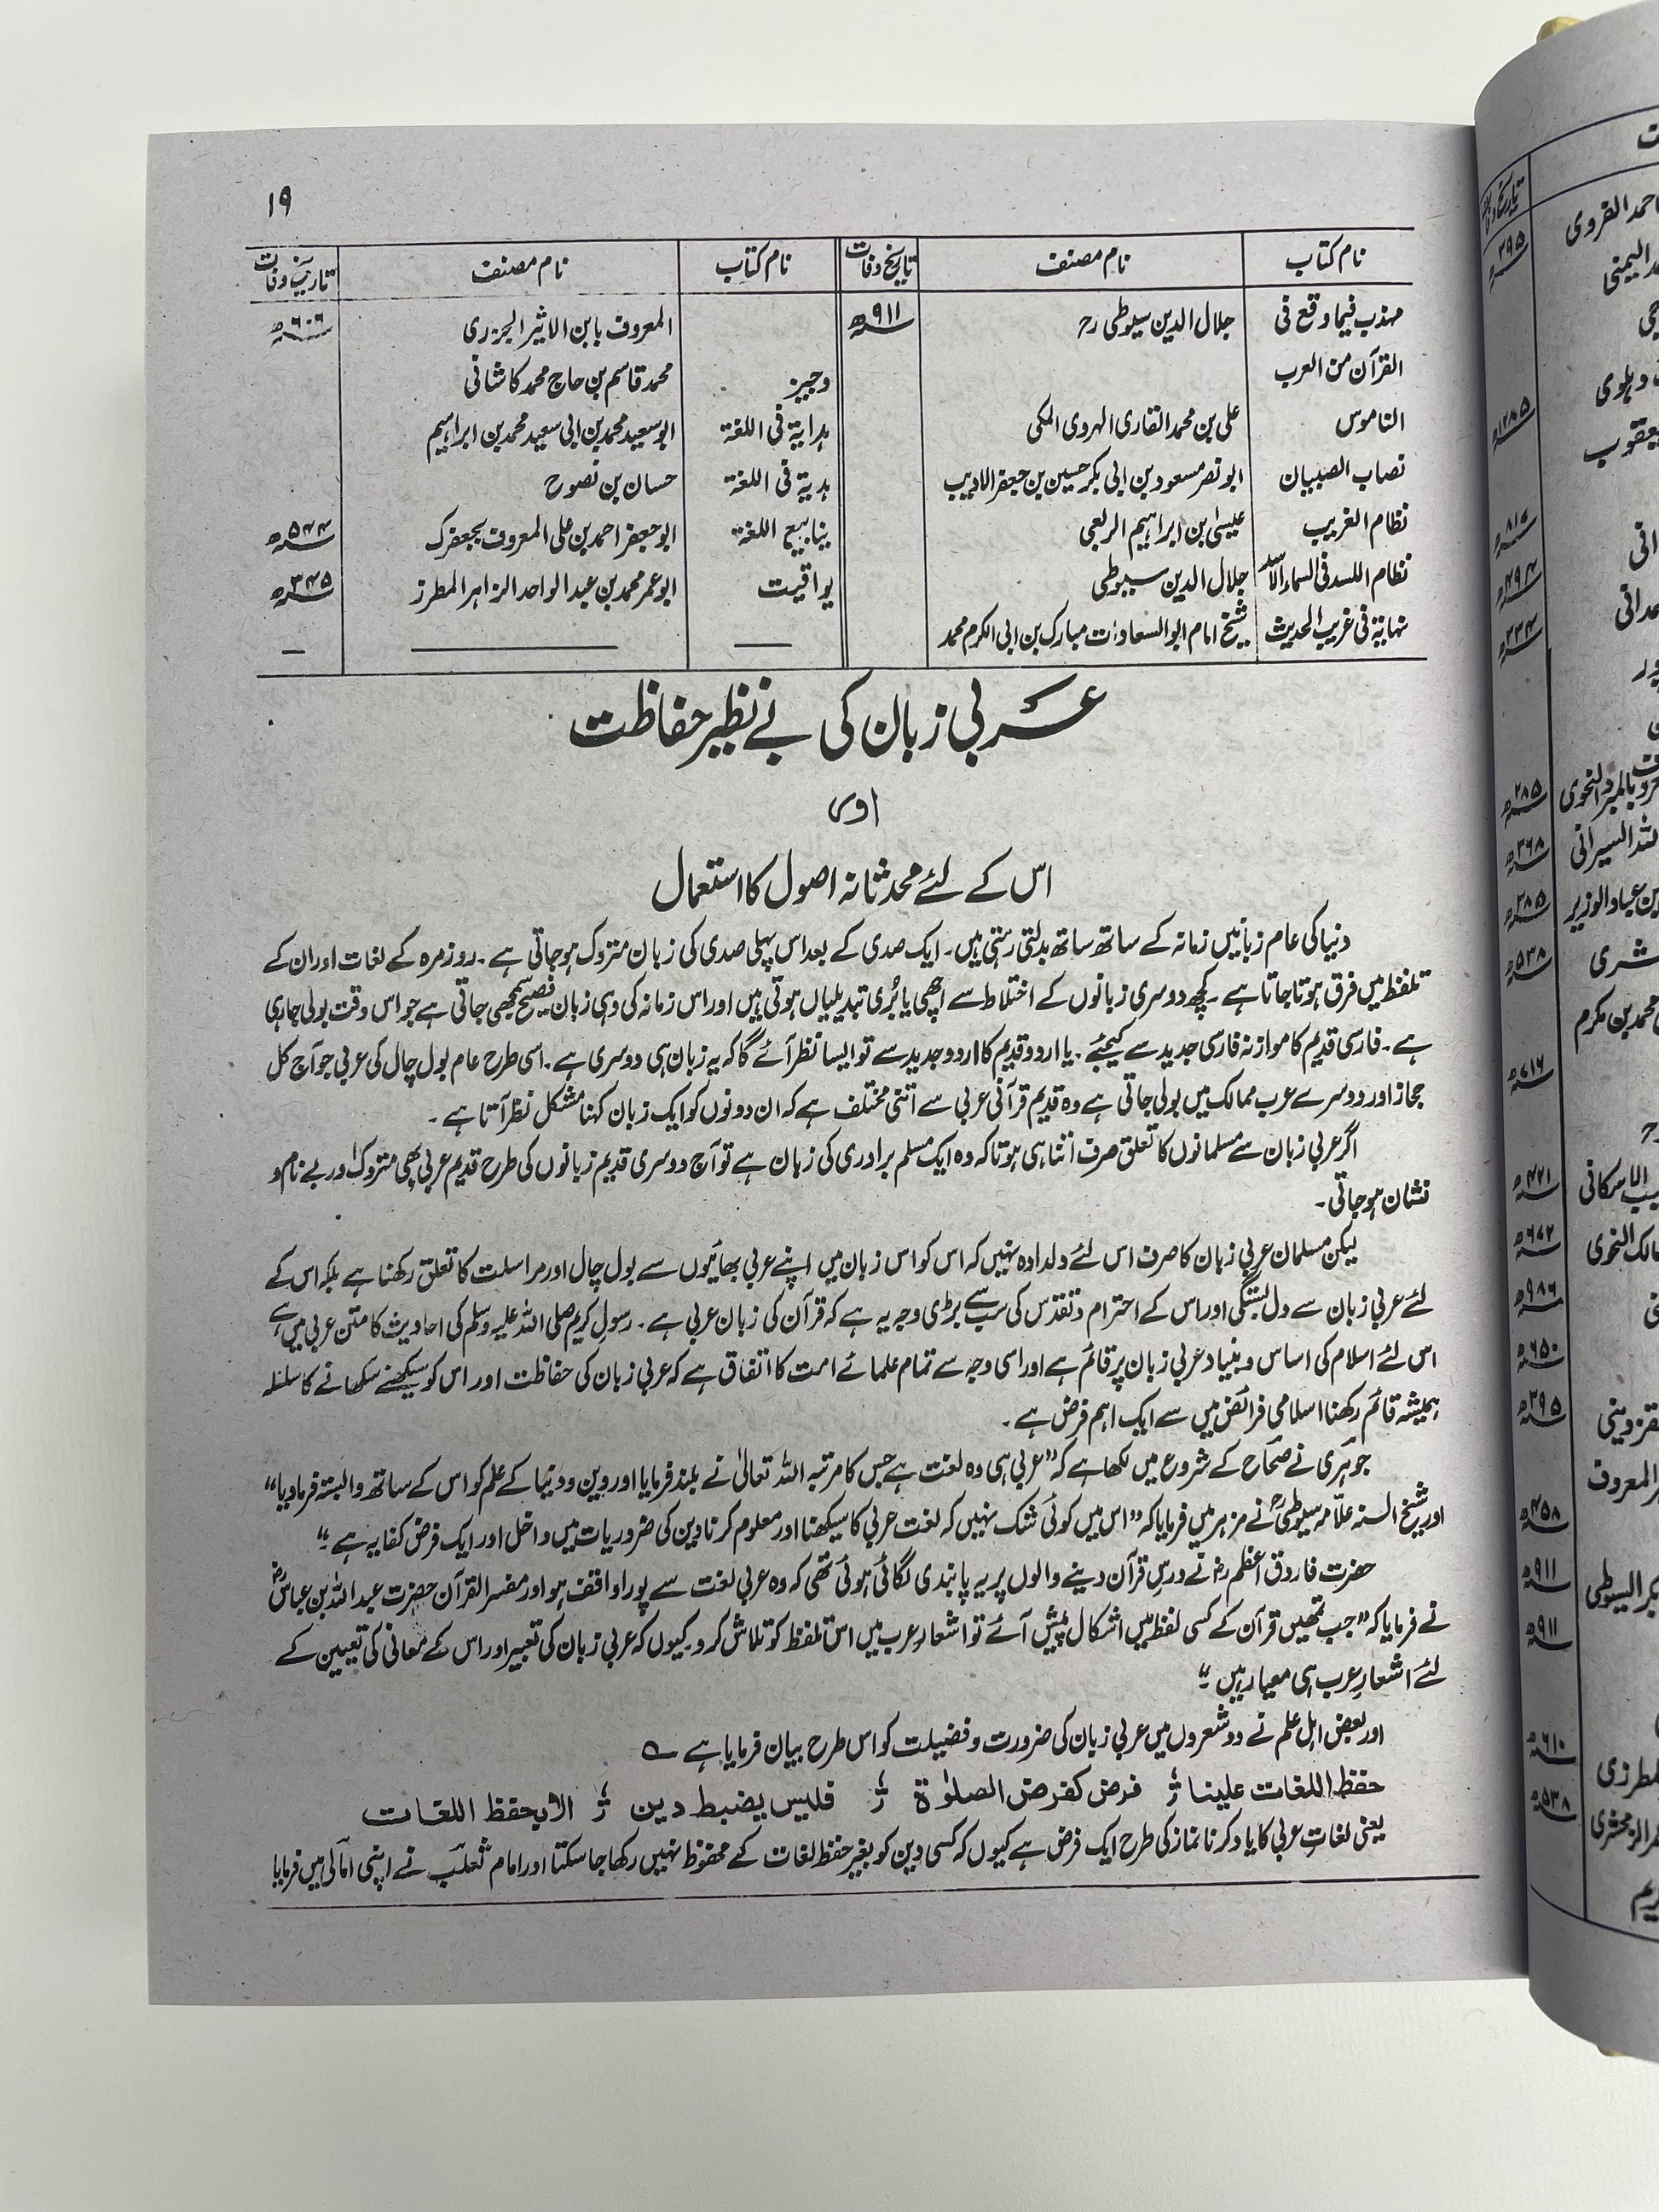 ۱۹
نام کتاب نام مصنف تاریخ وفات نام کتاب نام مصنف تاریخ وفات
مہذب فیما وقع فی جلال الدین سیوطی رح ۹۱۱ھ المعروف بابن الاثیر الجزری ۶۰۶ھ
القرآن من العرب وجیز محمد قاسم بن حاج محمد کاشانی
الناموس علی بن محمد القاری الہروی المکی ہدایۃ فی اللغۃ ابوسعید محمد بن ابی سعید محمد بن ابراہیم
نصاب الصبیان ابونصر مسعود بن ابی بکر حسین بن جعفر الادیب ہدیۃ فی اللغۃ حسان بن نصوح
نظام الغریب عیسیٰ بن ابراہیم الربعی ینابیع اللغۃ ابوجعفر احمد بن علی المعروف بجعفرک ۵۴۴ھ
نظام اللسد فی السماء الاسد جلال الدین سیوطی یواقیت ابوعمر محمد بن عبد الواحد الزاہر المطرز ۳۴۵ھ
نہایۃ فی غریب الحدیث شیخ امام ابو السعادات مبارک بن ابی الکرم محمد
عربی زبان کی بے نظیر حفاظت
اور
اس کے لئے محدثانہ اصول کا استعمال
دنیا کی عام زبانیں زمانہ کے ساتھ ساتھ بدلتی رہتی ہیں۔ ایک صدی کے بعد اس پہلی صدی کی زبان متروک ہو جاتی ہے۔ روزمرہ کے لغات اور ان کے
تلفظ میں فرق ہوتا جاتا ہے۔ کچھ دوسری زبانوں کے اختلاط سے اچھی یا بُری تبدیلیاں ہوتی ہیں اور اس زمانہ کی وہی زبان فصیح سمجھی جاتی ہے جو اس وقت بولی جا رہی
ہے۔ فارسی قدیم کا موازنہ فارسی جدید سے کیجئے۔ یا اردو قدیم کا اردو جدید سے تو ایسا نظر آئے گا کہ یہ زبان ہی دوسری ہے۔ اسی طرح عام بول چال کی عربی جو آج کل
حجاز اور دوسرے عرب ممالک میں بولی جاتی ہے وہ قدیم قرآنی عربی سے اتنی مختلف ہے کہ ان دونوں کو ایک زبان کہنا مشکل نظر آتا ہے۔
اگر عربی زبان سے مسلمانوں کا تعلق صرف اتنا ہی ہوتا کہ وہ ایک مسلم برادری کی زبان ہے تو آج دوسری قدیم زبانوں کی طرح قدیم عربی بھی متروک اور بے نام و
نشان ہو جاتی۔
لیکن مسلمان عربی زبان کا صرف اس لئے دلدادہ نہیں کہ اس کو اس زبان میں اپنے عربی بھائیوں سے بول چال اور مراسلت کا تعلق رکھنا ہے بلکہ اس کے
لئے عربی زبان سے دل بستگی اور اس کے احترام و تقدس کی سب سے بڑی وجہ یہ ہے کہ قرآن کی زبان عربی ہے۔ رسول کریم صلی اللہ علیہ وسلم کی احادیث کا متن عربی میں ہے
اس لئے اسلام کی اساس و بنیاد عربی زبان پر قائم ہے اور اسی وجہ سے تمام علمائے امت کا اتفاق ہے کہ عربی زبان کی حفاظت اور اس کو سیکھنے سکھانے کا سلسلہ
ہمیشہ قائم رکھنا اسلامی فرائض میں سے ایک اہم فرض ہے۔
جوہری نے صحاح کے شروع میں لکھا ہے کہ ”عربی ہی وہ لغت ہے جس کا مرتبہ اللہ تعالیٰ نے بلند فرمایا اور دین و دنیا کے علم کو اس کے ساتھ وابستہ فرما دیا“
اور شیخ السنہ علّامہ سیوطیؒ نے مزہر میں فرمایا کہ ”اس میں کوئی شک نہیں کہ لغت عربی کا سیکھنا اور معلوم کرنا دین کی ضروریات میں داخل اور ایک فرض کفایہ ہے۔“
حضرت فاروق اعظمؓ نے درسِ قرآن دینے والوں پر یہ پابندی لگائی ہوئی تھی کہ وہ عربی لغت سے پورا واقف ہو اور مفسر القرآن حضرت عبد اللہ بن عباسؓ
نے فرمایا کہ ”جب تمہیں قرآن کے کسی لفظ میں اشکال پیش آئے تو اشعارِ عرب میں اس تلفظ کو تلاش کرو۔ کیوں کہ عربی زبان کی تعبیر اور اس کے معانی کی تعیین کے
لئے اشعارِ عرب ہی معیار ہیں۔“
اور بعض اہل علم نے دو شعروں میں عربی زبان کی ضرورت و فضیلت کو اس طرح بیان فرمایا ہے ؎
حفظ اللغات علینا ؛ فرض کفرض الصلوٰۃ ؛ فلیس یضبط دین ؛ الا بحفظ اللغات
یعنی لغاتِ عربی کا یاد کرنا نماز کی طرح ایک فرض ہے کیوں کہ کسی دین کو بغیر حفظ لغات کے محفوظ نہیں رکھا جا سکتا اور امام ثعلب نے اپنی امالی میں فرمایا